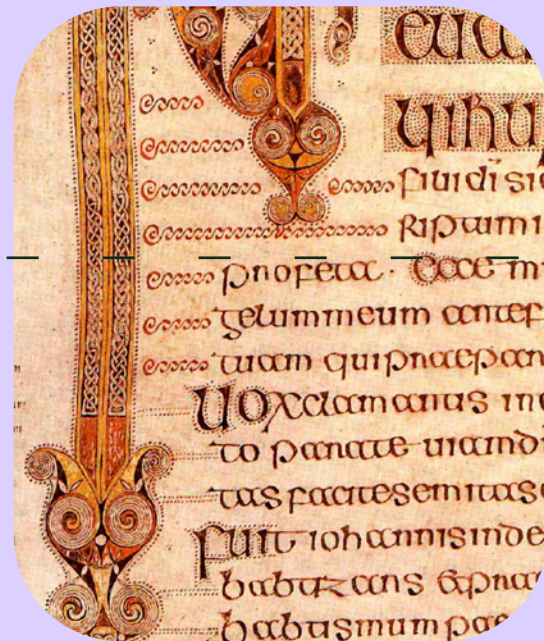 euan
ii ihu
fili di sic
riptum
profeta · Ecce mi
gelum meum ante f
tuam qui praepar
Uox clamantis in
to parate uiam d
tas facite semitas e
Fuit iohannis in de
babtizans & prae
babtismum pae